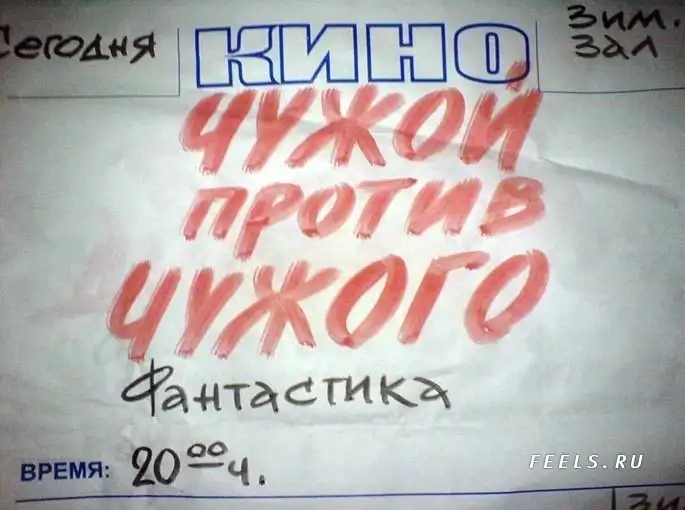 Сегодня КИНО Зим.
зал
ЧУЖОЙ
против
ЧУЖОГО
Фантастика
ВРЕМЯ: 20 00 ч.
FEELS.RU